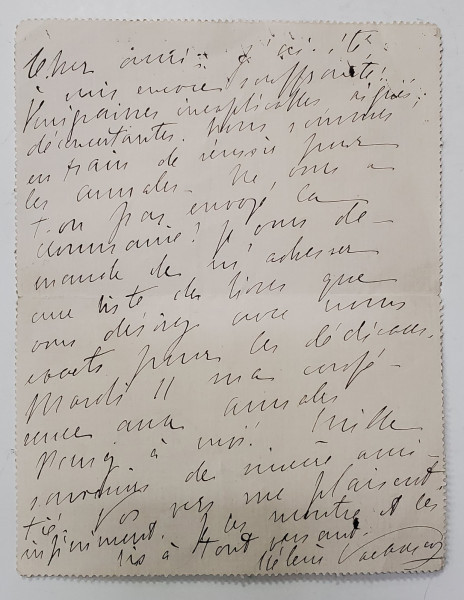 Cher ami - J'ai été
& suis encore souffrante!
Migraines inexplicables,
déconcertantes. Nous sommes
en train de réussir pour
les annales - Ne vous a
t-on pas envoyé la
? Je vous de-
mande de m'adresser
une liste des livres que
vous désirez avec noms
exacts pour les dédicaces.
Mardi 11 ma confé-
rence aux annales
Pensez à moi! Mille
souvenirs de sincère ami-
tié. Vos vers me plaisent
infiniment. Je les montre et les
lis à tout venant.
Hélène Vacaresco